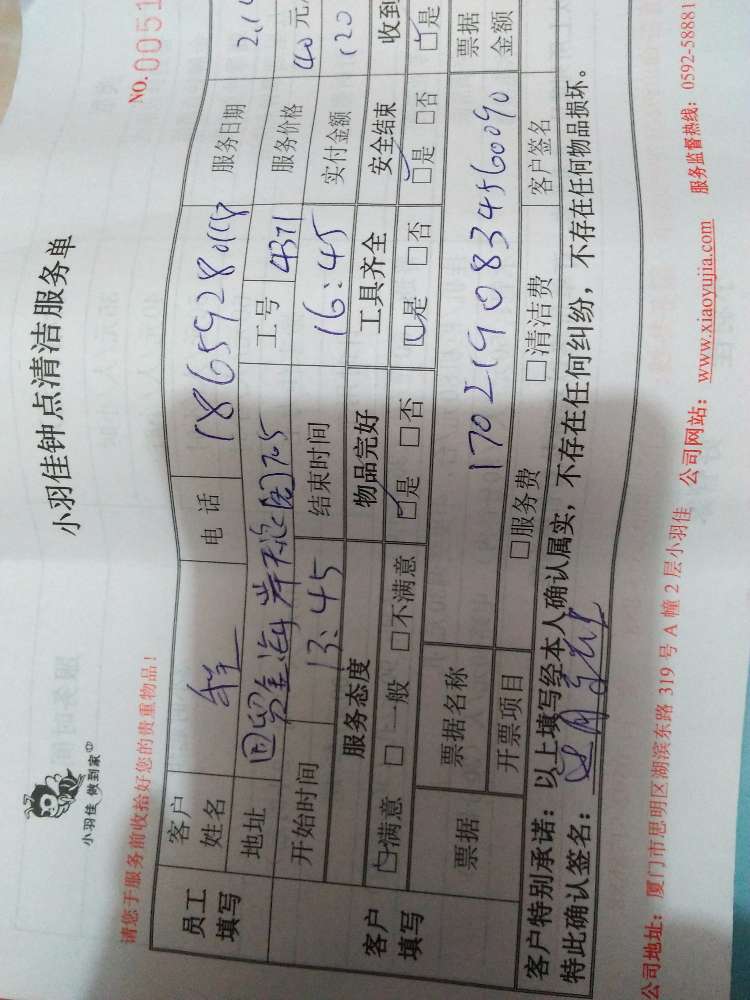 小羽佳 做到家
小羽佳钟点清洁服务单
请您于服务前收拾好您的贵重物品！
NO.0051
员工填写 客户姓名 电话 服务日期 2.1
地址 工号 4371 服务价格 40 元
开始时间 13:45 结束时间 16:45 实付金额 120
客户填写 服务态度 物品完好 工具齐全 安全结束 收到
□满意 □一般 □不满意 □是 □否 □是 □否 □是 □否 □是
票据 票据名称 1702190834560090 票据金额
开票项目 □服务费 □清洁费 客户签名
客户特别承诺：以上填写经本人确认属实，不存在任何纠纷，不存在任何物品损坏。
特此确认签名：
公司地址：厦门市思明区湖滨东路 319 号 A 幢 2 层小羽佳 公司网站：www.xiaoyujia.com 服务监督热线：0592-58881